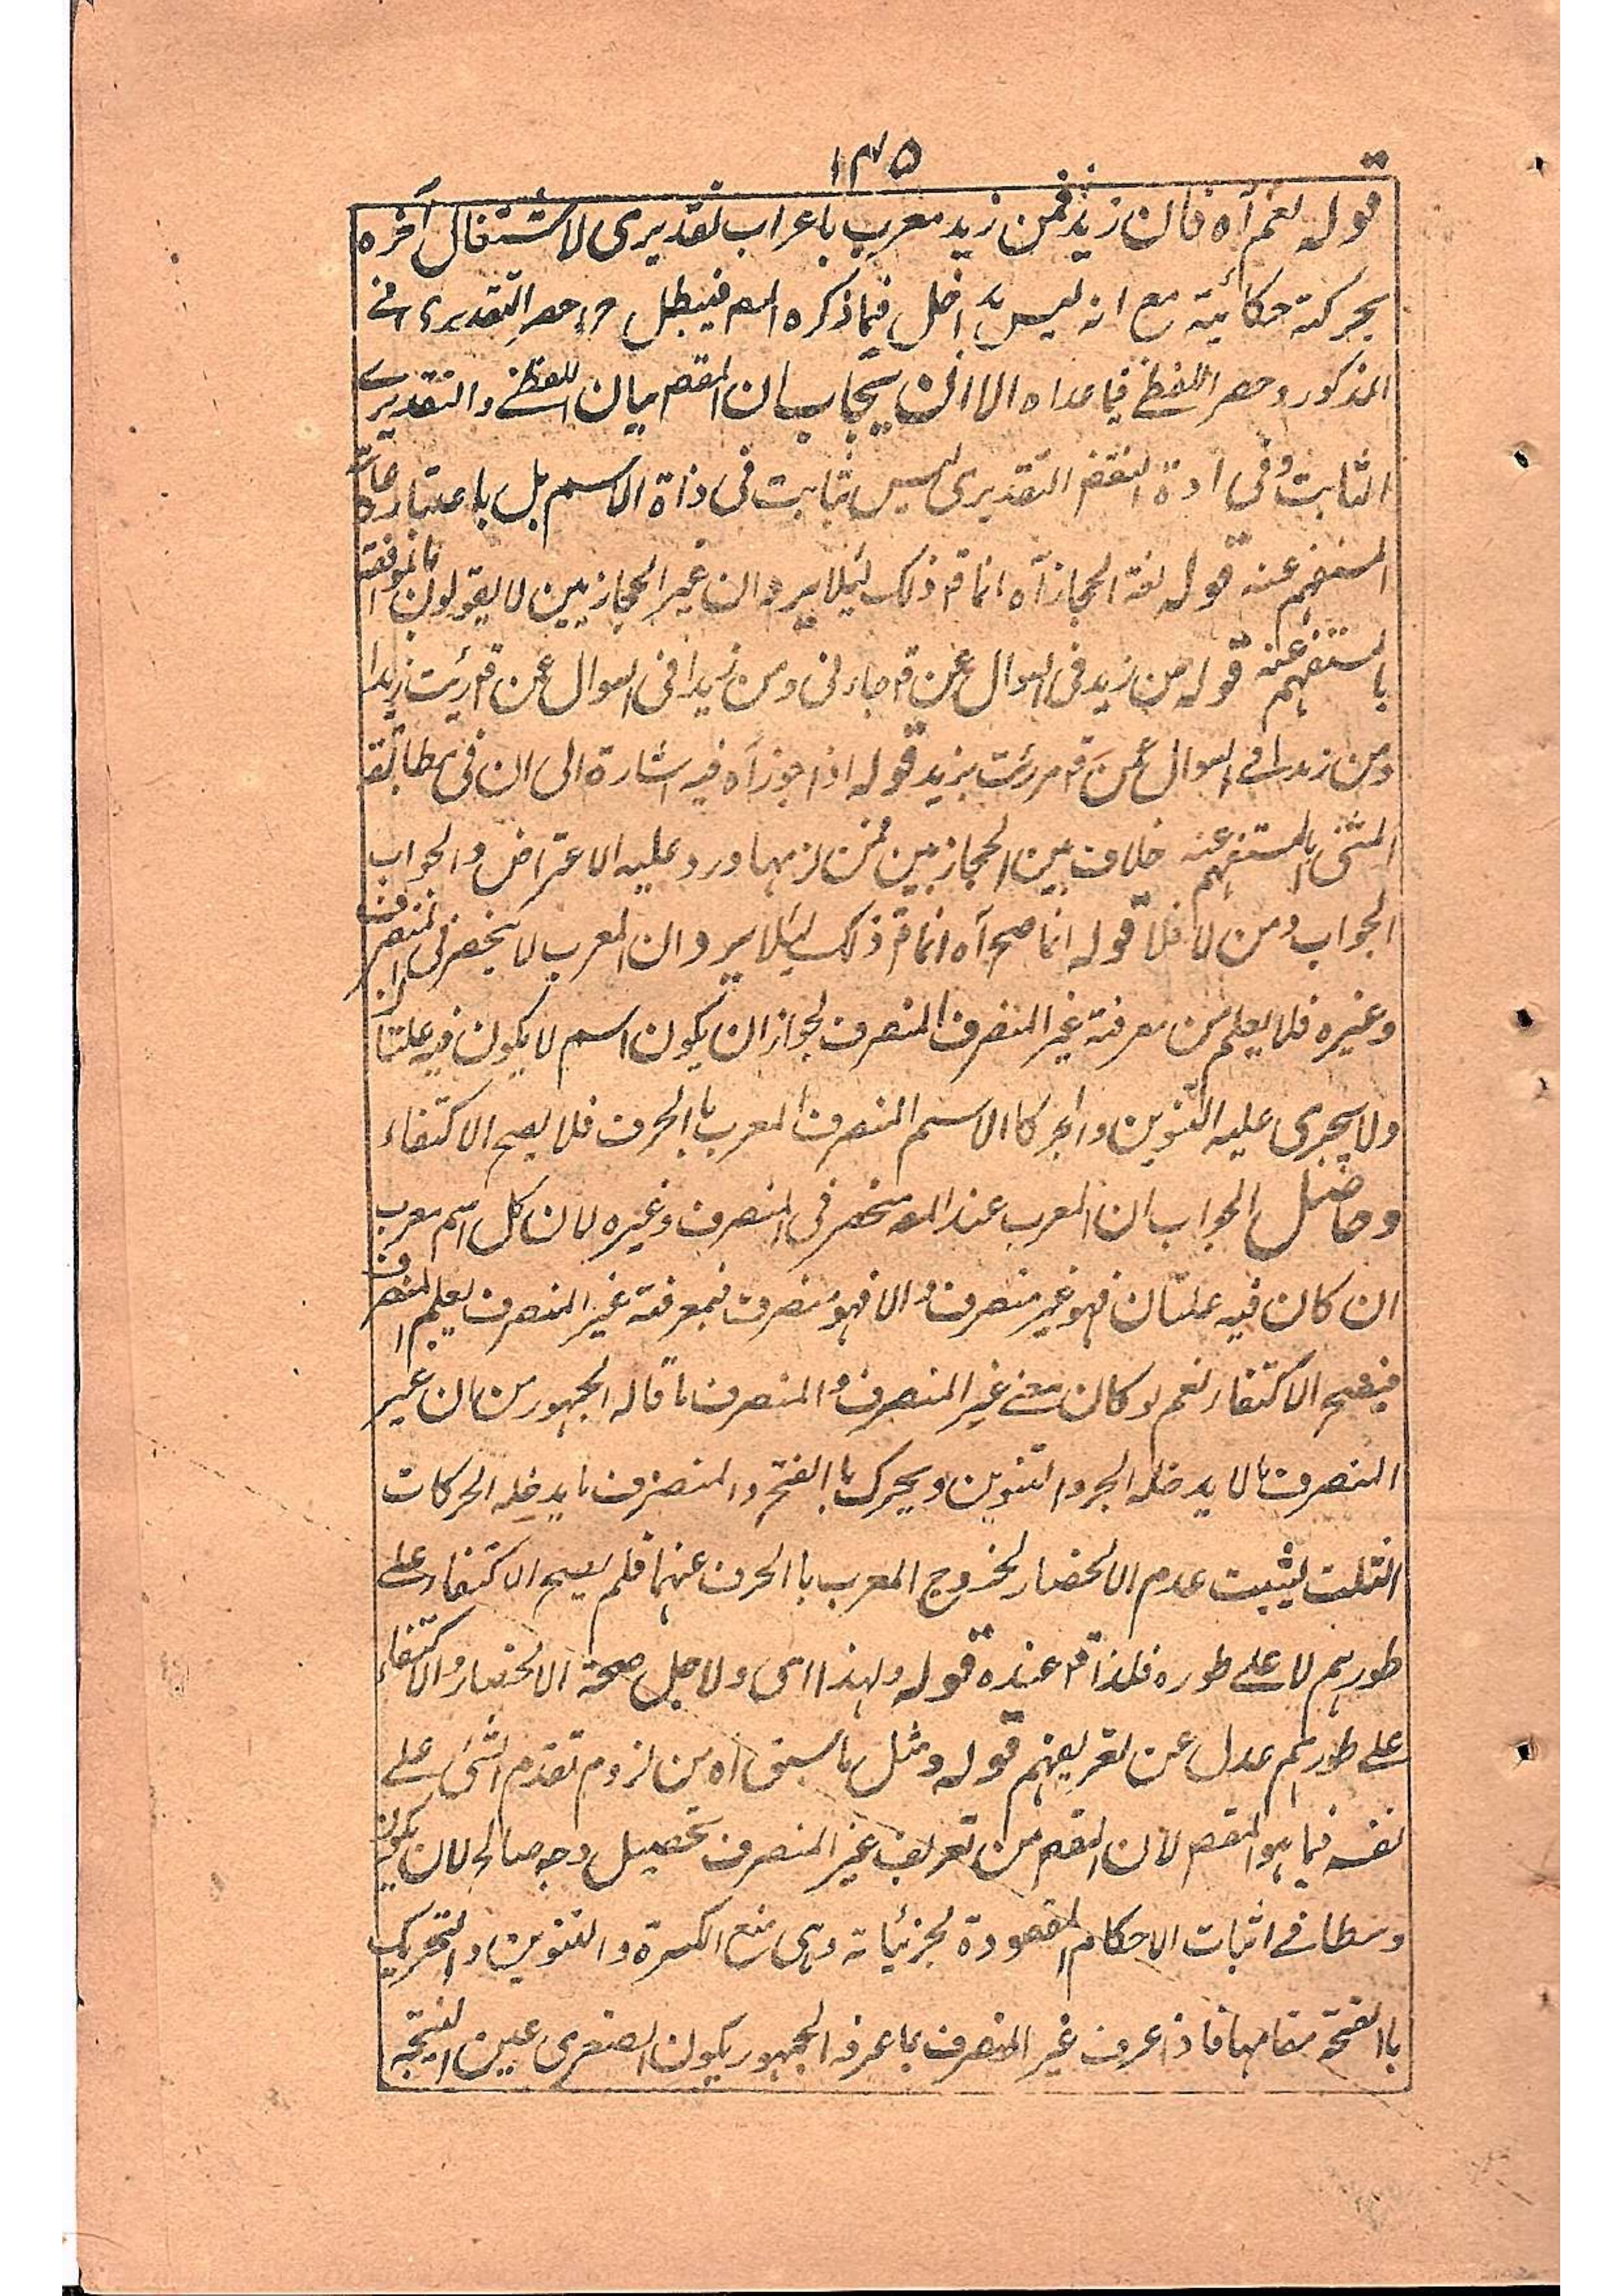 ١٣٥
قوله نعم آه فان زيد فمن زيد معرب باعراب تقديرى لاشتغال آخره
بحركته حكائية مع انه ليس بداخل فيما ذكره المص فيبطل حصر التقديرى فے
المذكور وحصر اللفظے فيما عداه الا ان يجاب بان المقص بيان اللفظے والتقديرے
الثابت وفى ادة النقض التقديرى ليس بثابت فى ذاة الاسم بل باعتبار
المستفهم عنه قوله لغة الحجاز آه انما قـ ذلك ليلا يرد ان غير الحجازيين لا يقولون بالموافقة
بالمستفهم عنه قوله من زيد فى السوال عمن قـ جاءنى ومن زيدا فى السوال عمن قـ رئيت زيدا
ومن زيد فے السوال عمن قـ مررت بزيد قوله اذا جوز آه فيه اشارة الى ان فى مطابقة
المثنى بالمستفهم عنه خلاف بين الحجازيين فمن لزمها ورد عليه الاعتراض والجواب
الجواب ومن لا فلا قوله انما صح آه انما قـ ذلك ليلا يرد ان المعرب لا ينحصر فى المنصرف
وغيره فلا يعلم من معرفة غير المنصرف المنصرف لجواز ان يكون اسم لا يكون فيه علتان
ولا يجرى عليه التنوين والجر كالاسم المنصرف المعرب باالحرف فلا يصح الاكتفاء
وحاصل الجواب ان المعرب عند المص منحصر فى المنصرف وغيره لان كل اسم معرب
ان كان فيه علتان فهو غير منصرف والا فهو منصرف فبمعرفة غير المنصرف يعلم المنصرف
فيصح الاكتفاء نعم لو كان معنے غير المنصرف والمنصرف ما قاله الجمهور من ان غير
المنصرف مالا يدخله الجر والتنوين ويحرك باالفتح والمنصرف ما يدخله الحركات
الثلث ليثبت عدم الانحصار لخروج المعرب باالحرف عنهما فلم يصح الاكتفاء علے
طورهم لا علے طوره فلذا قـ عنده قوله ولهذا اى ولاجل صحة الانحصار والاكتفاء
علے طورهم عدل عن تعريفهم قوله ومثل ما سبق آه من لزوم تقدم الشئ علے
نفسه فيما هو المقص لان المقص من تعريف غير المنصرف تحصيل وجه صالح لان يكون
وسطا فے اثبات الاحكام المقصودة لجزئياته وهى منع الكسرة والتنوين والتحريك
باالفتحة مقامها فاذا عرف غير المنصرف بما عرفه الجمهور يكون الصغرى عين النتيجة